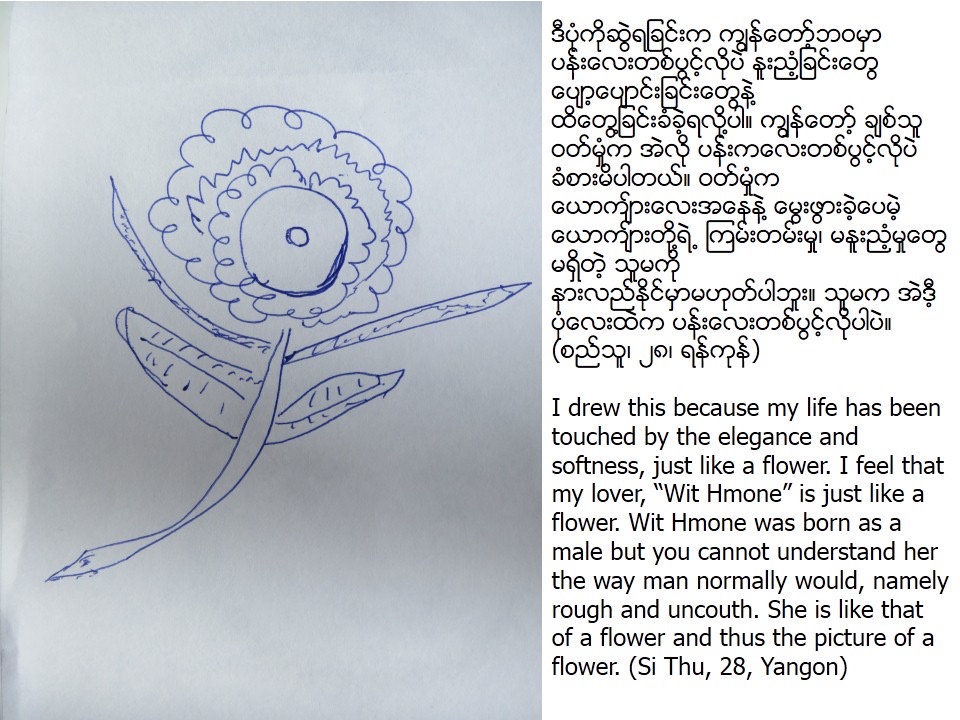 ဒီပုံကိုဆွဲရခြင်းက ကျွန်တော့်ဘဝမှာ
ပန်းလေးတစ်ပွင့်လိုပဲ နူးညံ့ခြင်းတွေ
ပျော့ပျောင်းခြင်းတွေနဲ့
ထိတွေ့ခြင်းခံခဲ့ရလို့ပါ။ ကျွန်တော့် ချစ်သူ
ဝတ်မှုံက အဲလို ပန်းကလေးတစ်ပွင့်လိုပဲ
ခံစားမိပါတယ်။ ဝတ်မှုံက
ယောကျ်ားလေးအနေနဲ့ မွေးဖွားခဲ့ပေမဲ့
ယောကျ်ားတို့ရဲ့ ကြမ်းတမ်းမှု၊ မနူးညံ့မှုတွေ
မရှိတဲ့ သူမကို
နားလည်နိုင်မှာမဟုတ်ပါဘူး။ သူမက အဲဒီ့
ပုံလေးထဲက ပန်းလေးတစ်ပွင့်လိုပါပဲ။
(စည်သူ၊ ၂၈၊ ရန်ကုန်)
I drew this because my life has been
touched by the elegance and
softness, just like a flower. I feel that
my lover, “Wit Hmone” is just like a
flower. Wit Hmone was born as a
male but you cannot understand her
the way man normally would, namely
rough and uncouth. She is like that
of a flower and thus the picture of a
flower. (Si Thu, 28, Yangon)